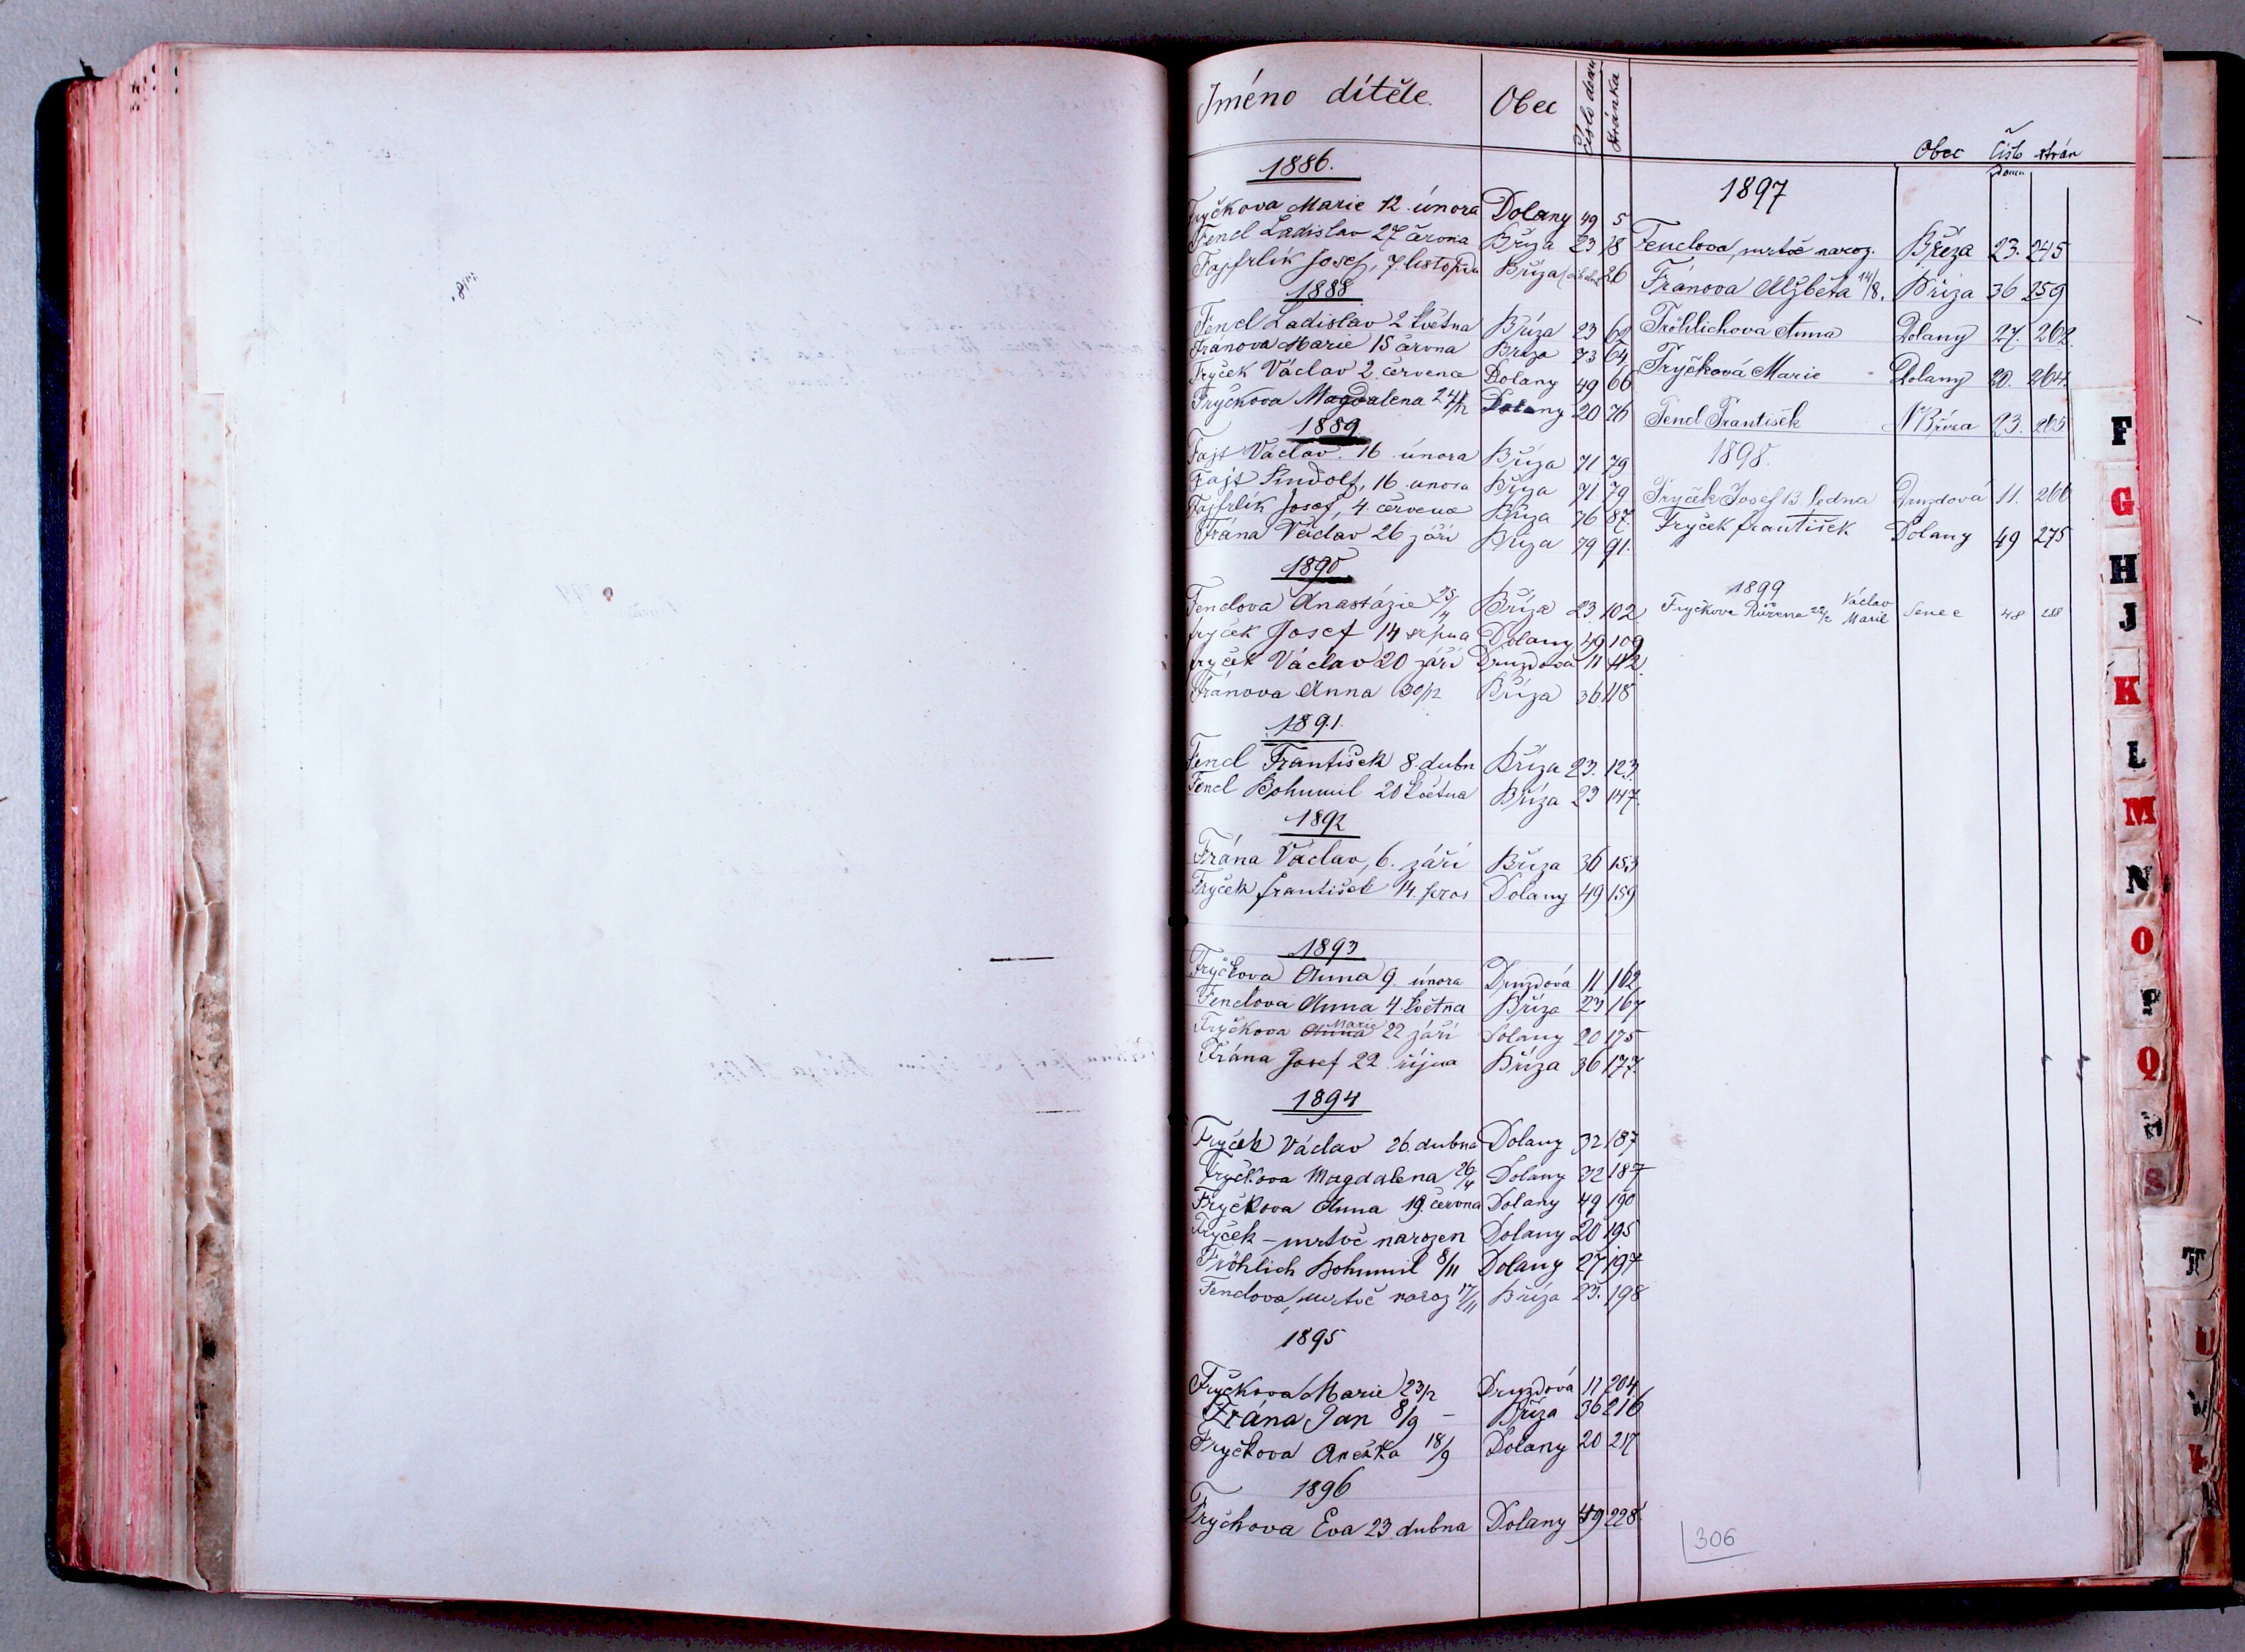 Jméno dítěte. Obec Číslo domu Stránka
1886.
Fryčkova Marie 12. února Dolany 49 5
Fencl Ladislav 27 června Bříza 23 18
Fajfrlík Josef, 7 listopadu Bříza 26
1888
Fencl Ladislav 2 května Bříza 23 62
Fránova Marie 15 června Bříza 73 64
Fryček Václav 2. července Dolany 49 66
Fryčkova Magdalena 24/12 Dolany 20 76
1889
Fajt Václav. 16 února Bříza 71 79
Fajt Rudolf, 16 února Bříza 71 79
Fajfrlík Josef, 4. července Bříza 76 87.
Frána Václav 26 září Bříza 79 91.
1890
Fenclova Anastázie 25/4 Bříza 23. 102
fryček Josef 14 srpna Dolany 49 109
fryček Václav 20 září Druzdová 11 112
Fránova Anna 30/12 Bříza 36 118
1891.
Fencl František 8. dubn Bříza 23. 123.
Fencl Bohumil 20 května Bříza 23 147.
1892
Frána Václav, 6. září Bříza 36 153
Fryček františek 14. pros Dolany 49 159
1893
Fryčkova Anna 9. února Druzdová 11 162
Fenclova Anna 4. května Bříza 23 167
Fryčkova Anna Marie 22 září Dolany 20 175
Frána Josef 22 října Bříza 36 177.
1894
Fryček Václav 26. dubna Dolany 32 187
fryčkova Magdalena 26/4 Dolany 32 187
Fryčkova Anna 19. června Dolany 49 190
Fryček - mrtvě narozen Dolany 20 195
Fröhlich Bohumil 8/11 Dolany 27 197
Fenclova, mrtvě naroz 17/11 Bříza 23. 198
1895
Fryčkova Marie 23/2 Druzdová 11 204
Frána Jan 8/9 - Bříza 36 216
Fryčkova Anežka 18/9 Dolany 20 217
1896
Frychova Eva 23. dubna Dolany 49 228
Obec Číslo domu strán
1897
Fenclova, mrtvě naroz. Bříza 23. 245
Fránova Alžběta 14/8. Bříza 36 259
Fröhlichova Anna Dolany 27. 262.
Fryčková Marie - Dolany 20. 264.
Fencl František N Bříza 23. 265
1898.
Fryček Josef 13 ledna Druzdová 11. 266
Fryček františek Dolany 49 275
1899
Fryčkova Růžena 22/2 Václav Marie Senec 48 288
306
F
G
H
J
K
L
M
N
O
P
Q
R
S
T
U